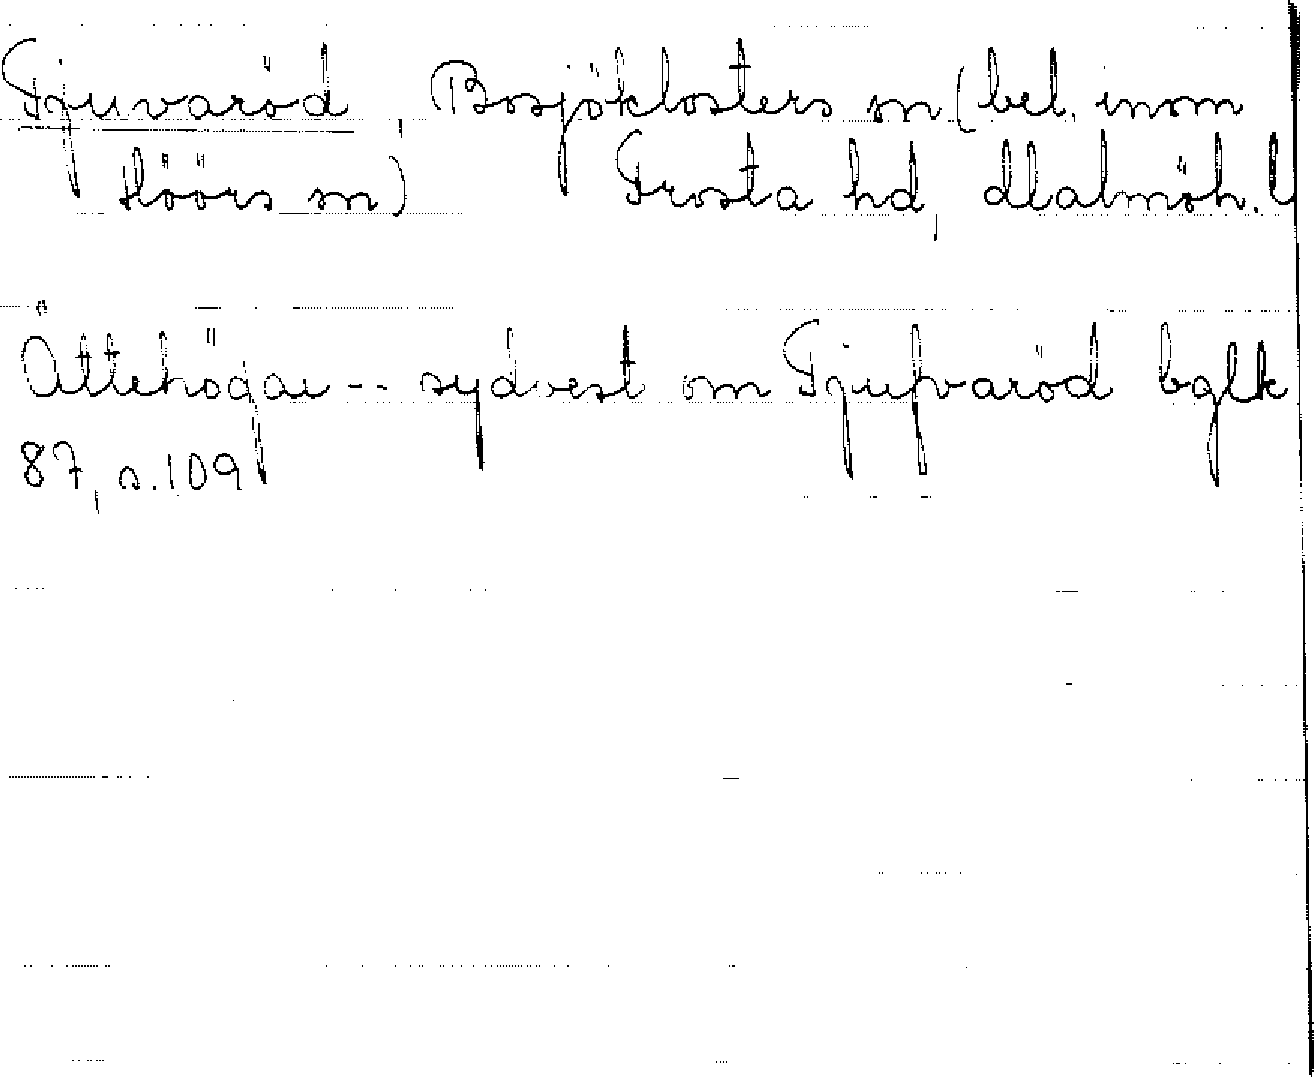 Tjuvaröd, Bosjöklosters sn (bel. inom
Höörs sn) Frosta hd, Malmöh. l
Ättehögar -- sydvest om Tjufvaröd bglk
87, s. 109